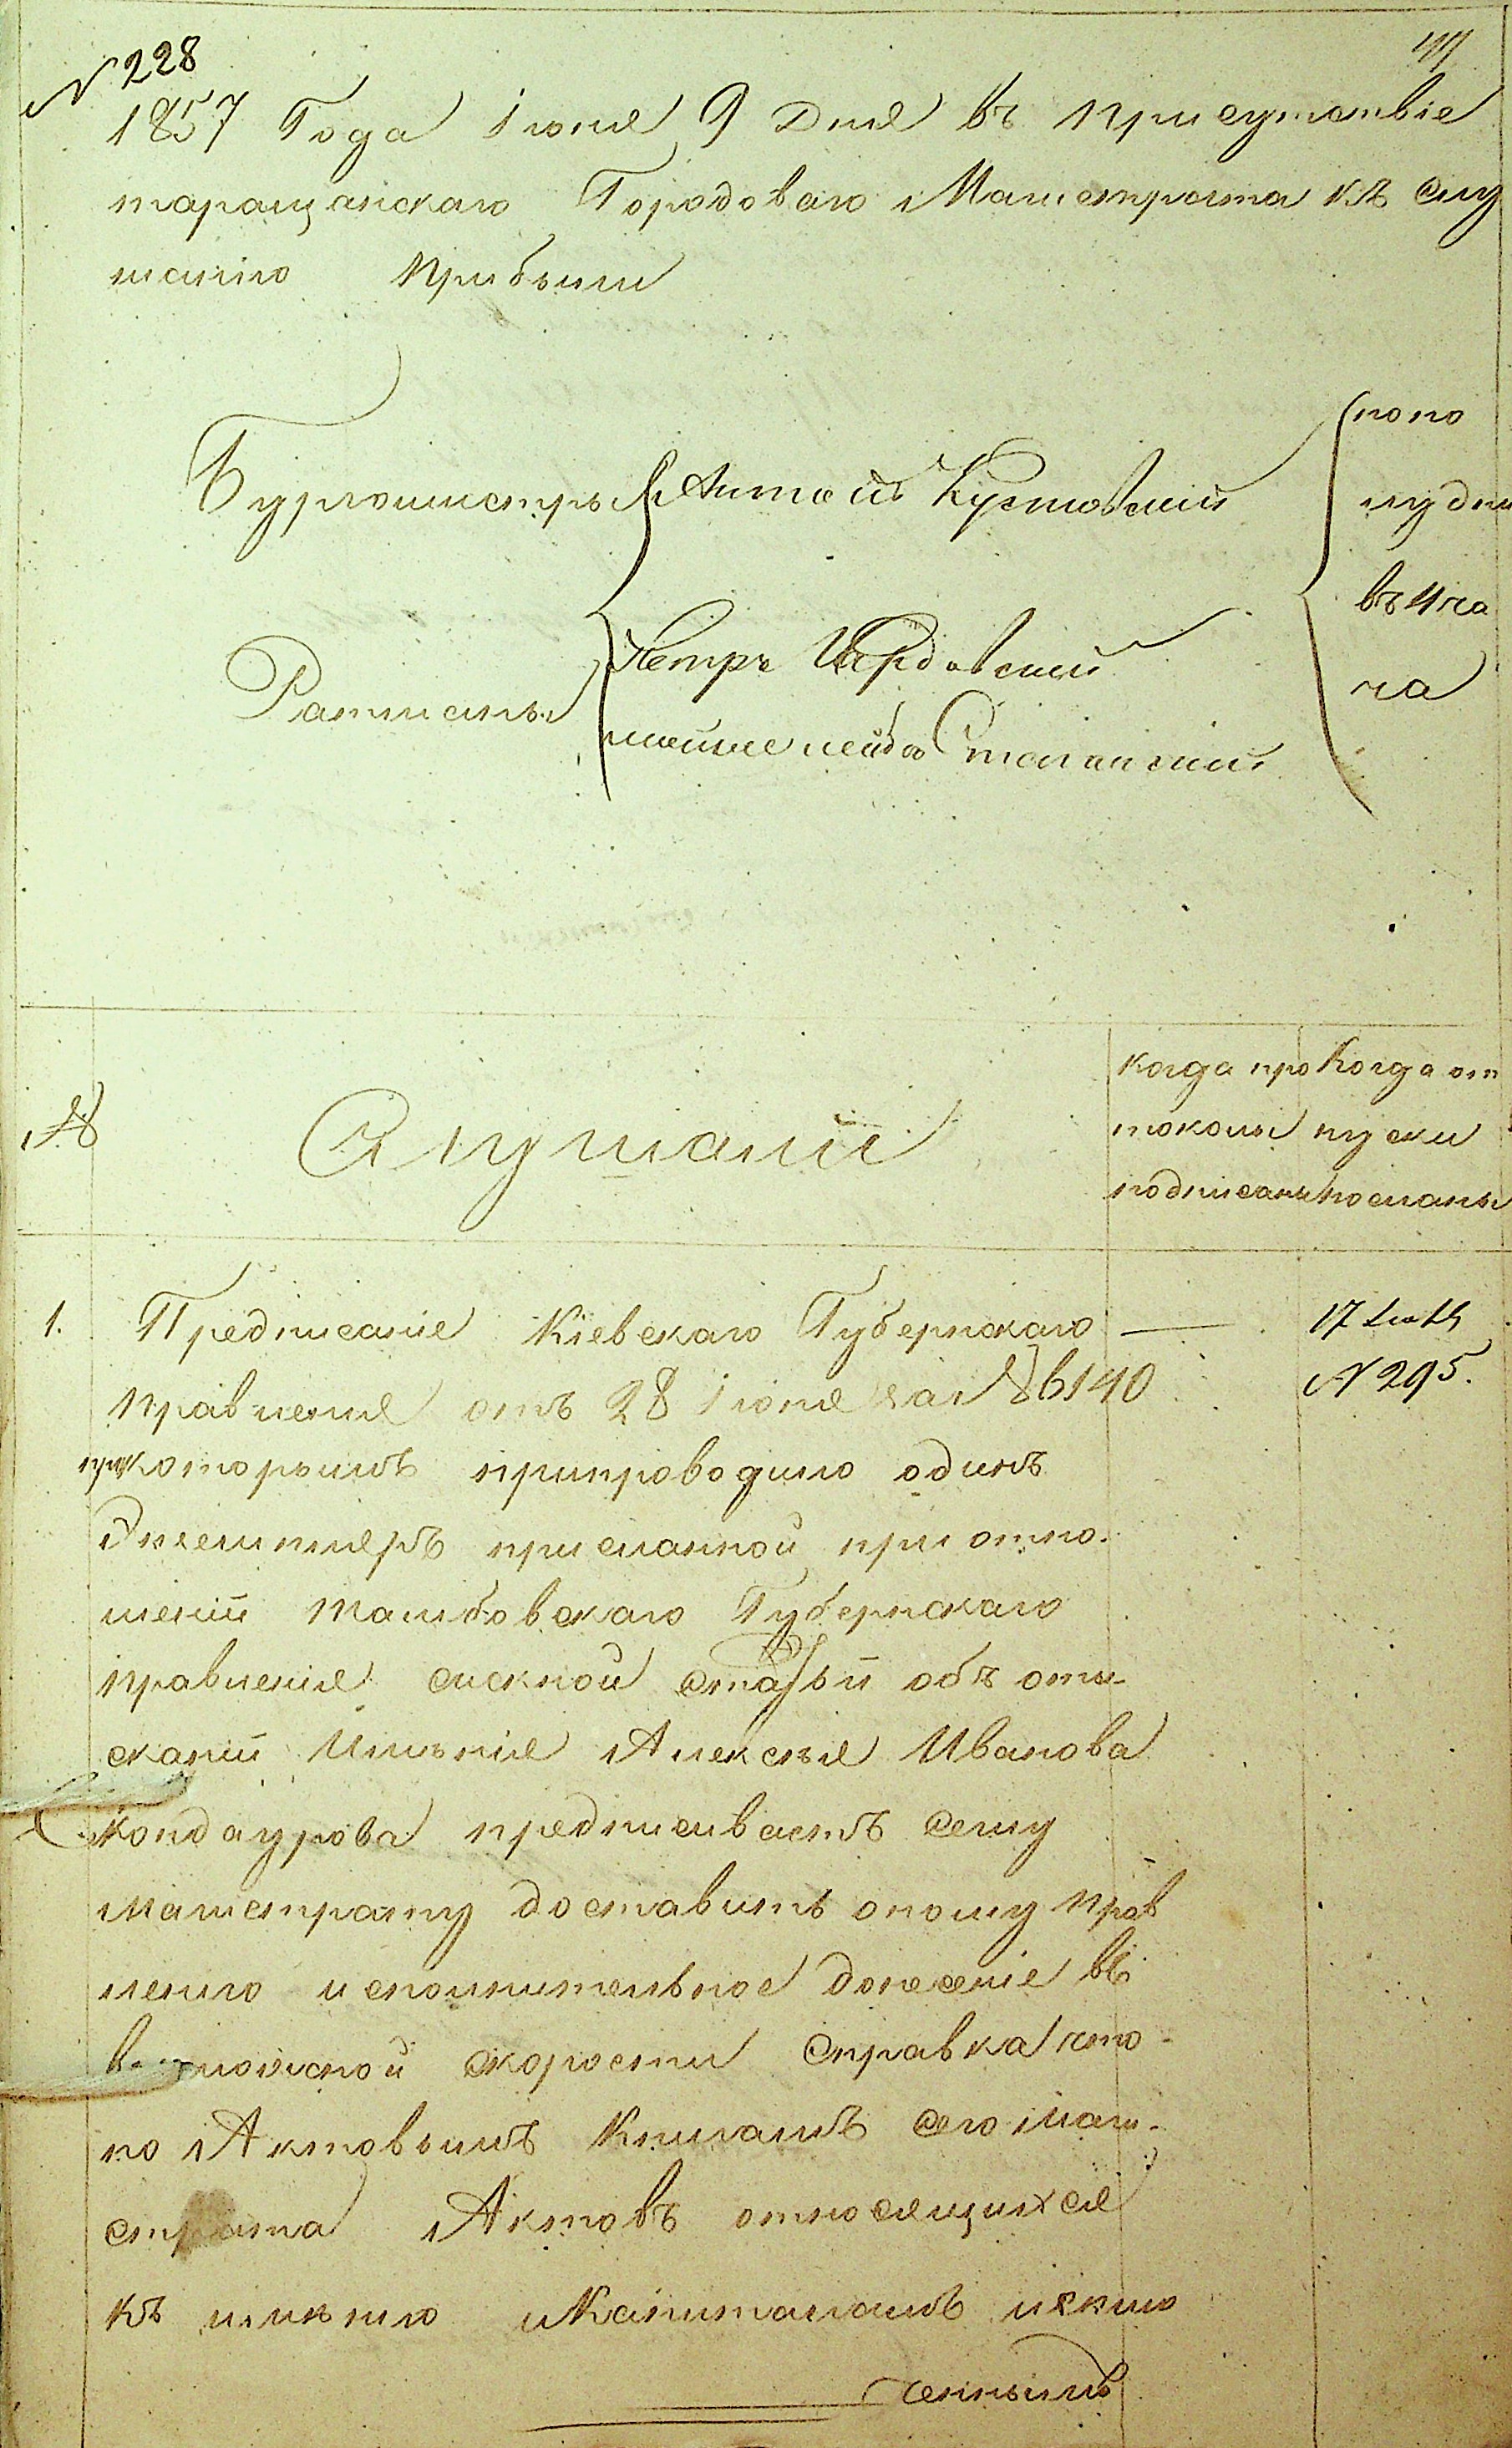 N 228
1857 Года Іюня 9 Дня въ присутствіе
таращанскаго Городоваго Магистрата къ слу
шанію прибыли
Бургомистръ Антон Кустовский
Ратманы Петръ
по по
лудни
въ 4 ча
са
№
Слушаніи
когда про
токолы
подписаны
Когда от
пуски
посланы
1. Предписаніе Кіевскаго Губернскаго
правленія отъ 28 Іюня за № 6140
при которымъ припроводило одинъ
Экземпляръ присланной при отно-
шеніи Тамбовскаго Губернскаго
правленія сыскной статьи объ оты-
сканіи Имѣнія Алексѣя Иванова
Кондаурова предписываетъ сему
магистрату доставить оному прав
ленію исполнительное донесеніе въ
возможной скорости Справка что
по Актовымъ Книгамъ сего Маги-
страта Актовъ относящихся
къ имѣнію и Капиталамъ исклю
ченнымъ
17
N 295.